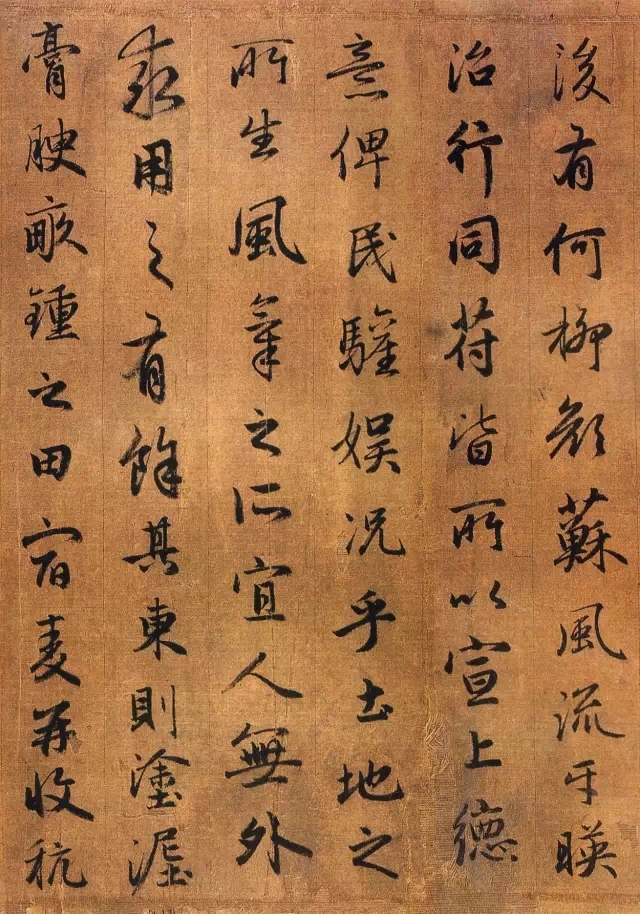 後有何柳顔蘇風流互暎
治行同苻皆所以宣上德
意俾民驩娱况乎土地之
所生風氣之所宜人無外
求用之有餘其東則塗泥
膏腴畝鍾之田宿麦再收秔